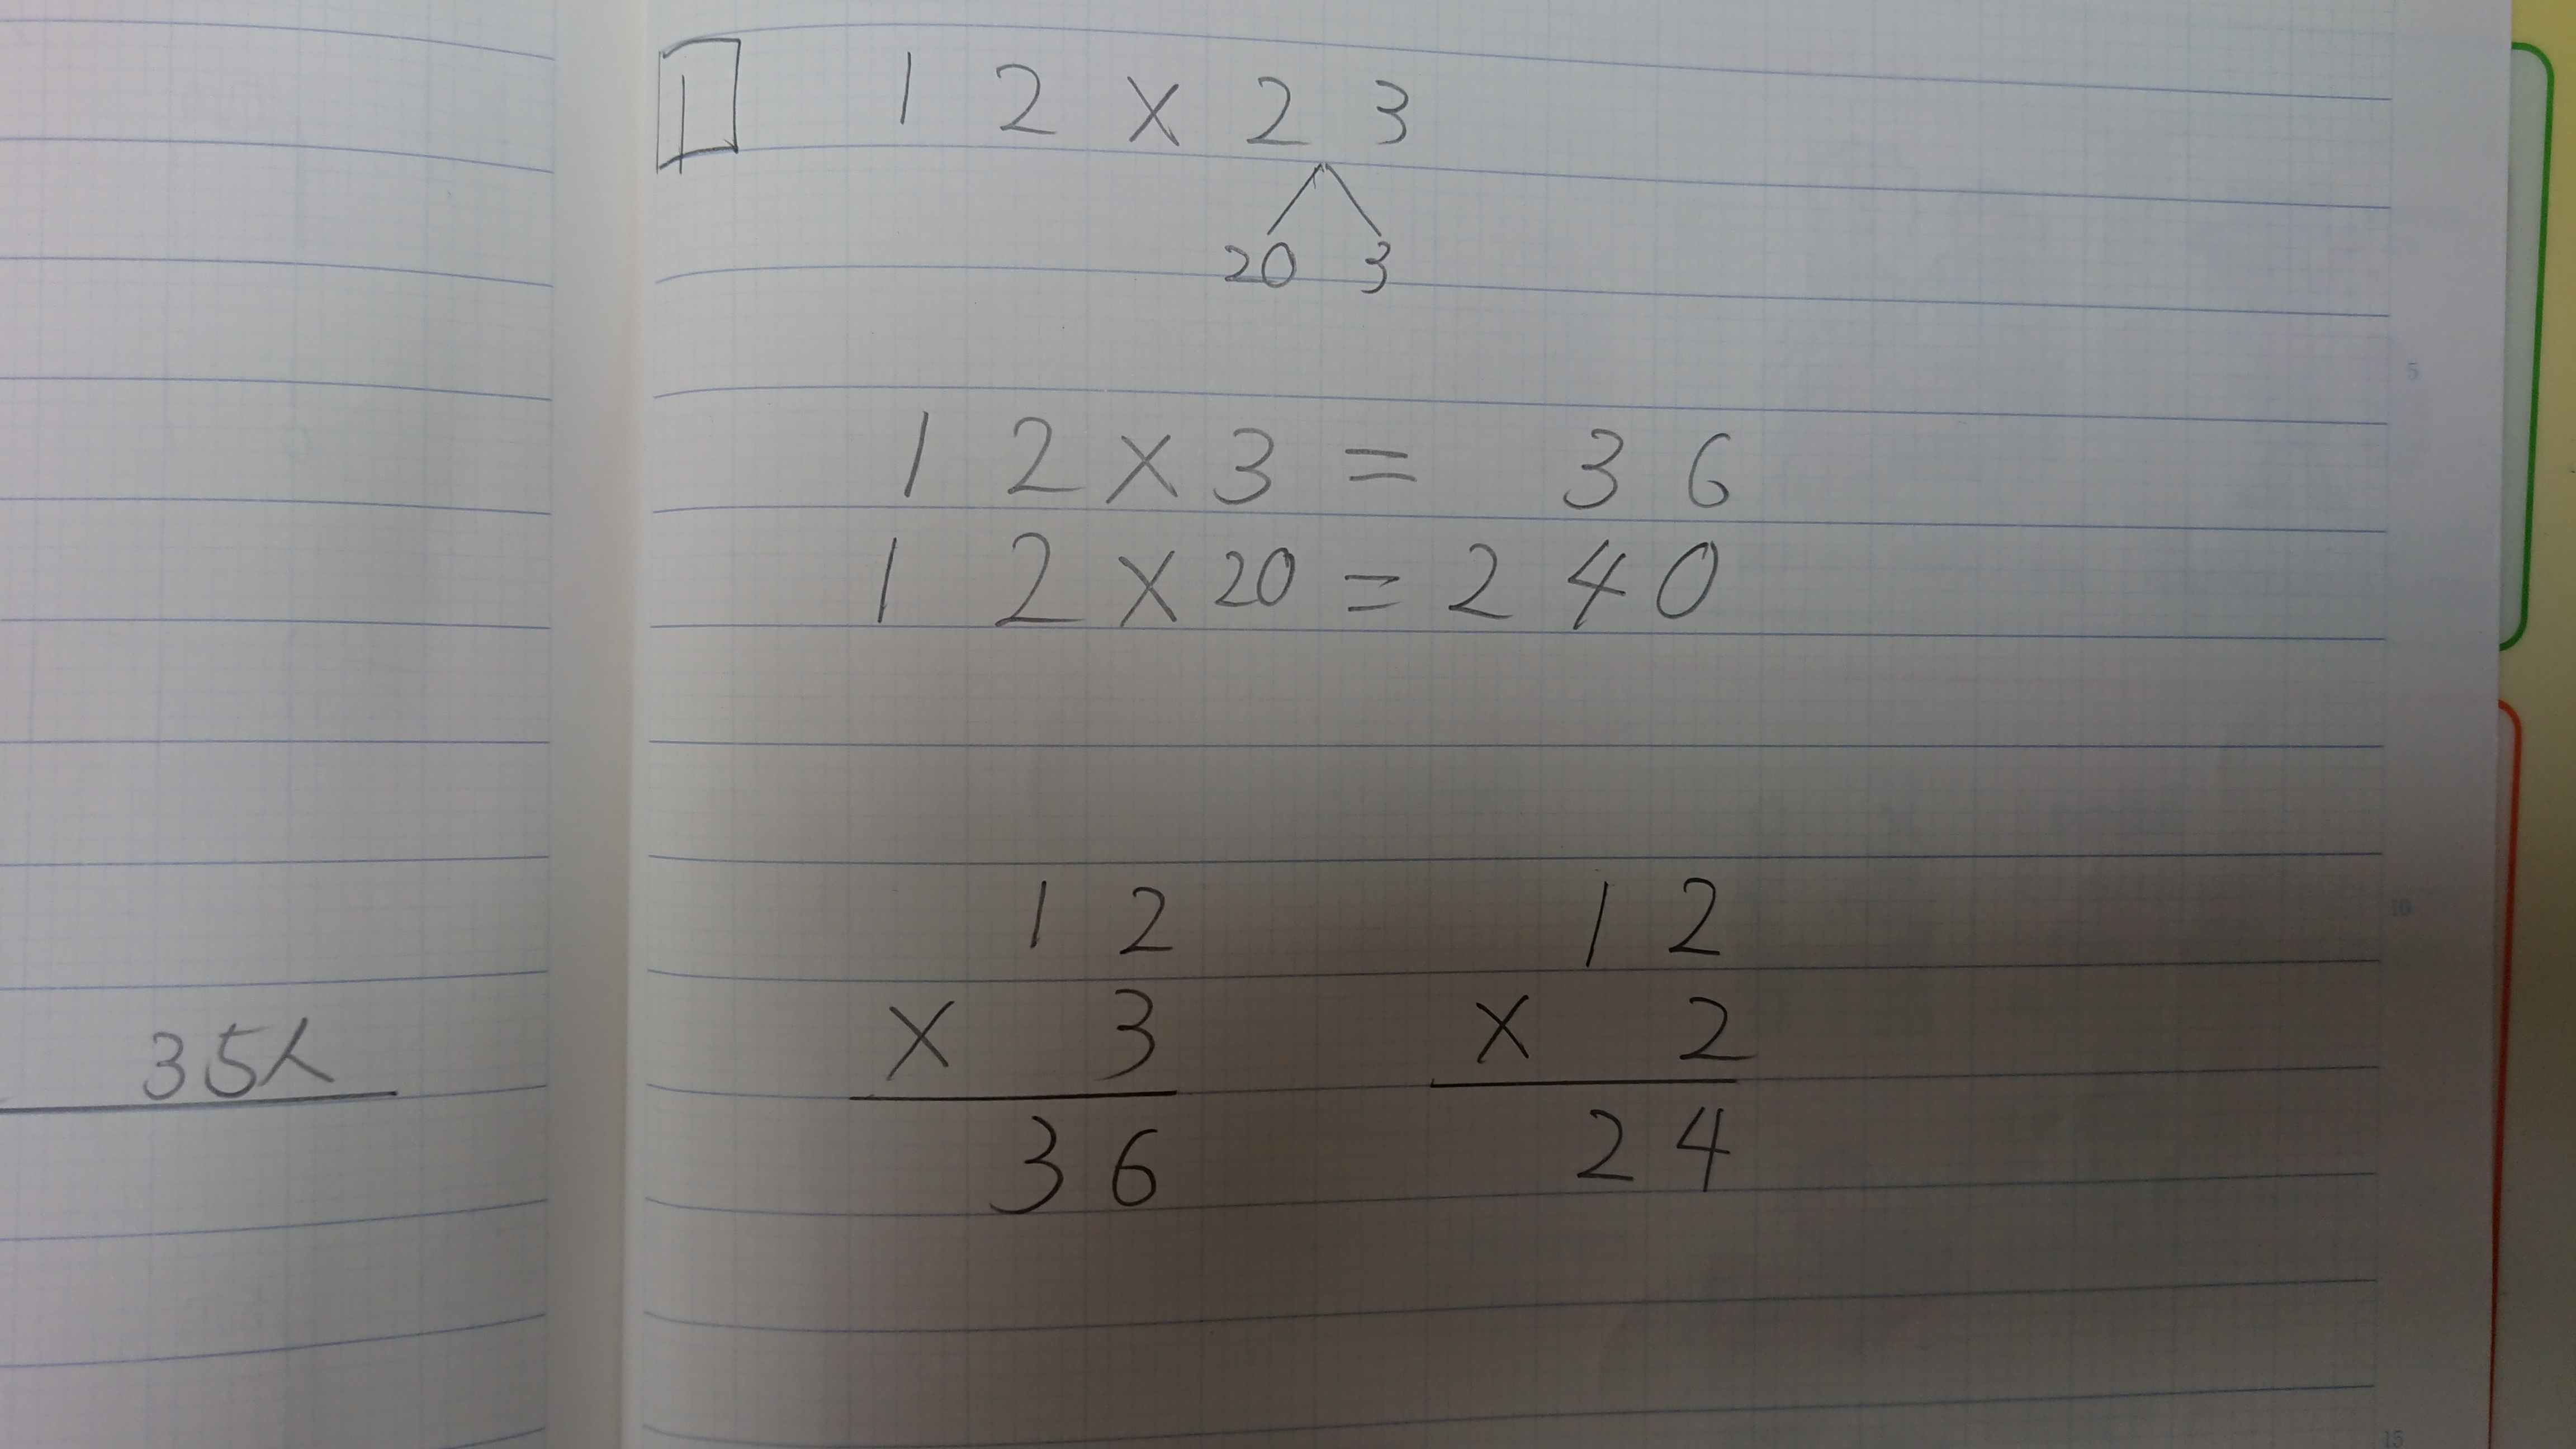 35人
1 12×23
20 3
12×3= 36
12×20=240
12 12
× 3 × 2
36 24
5
10
15